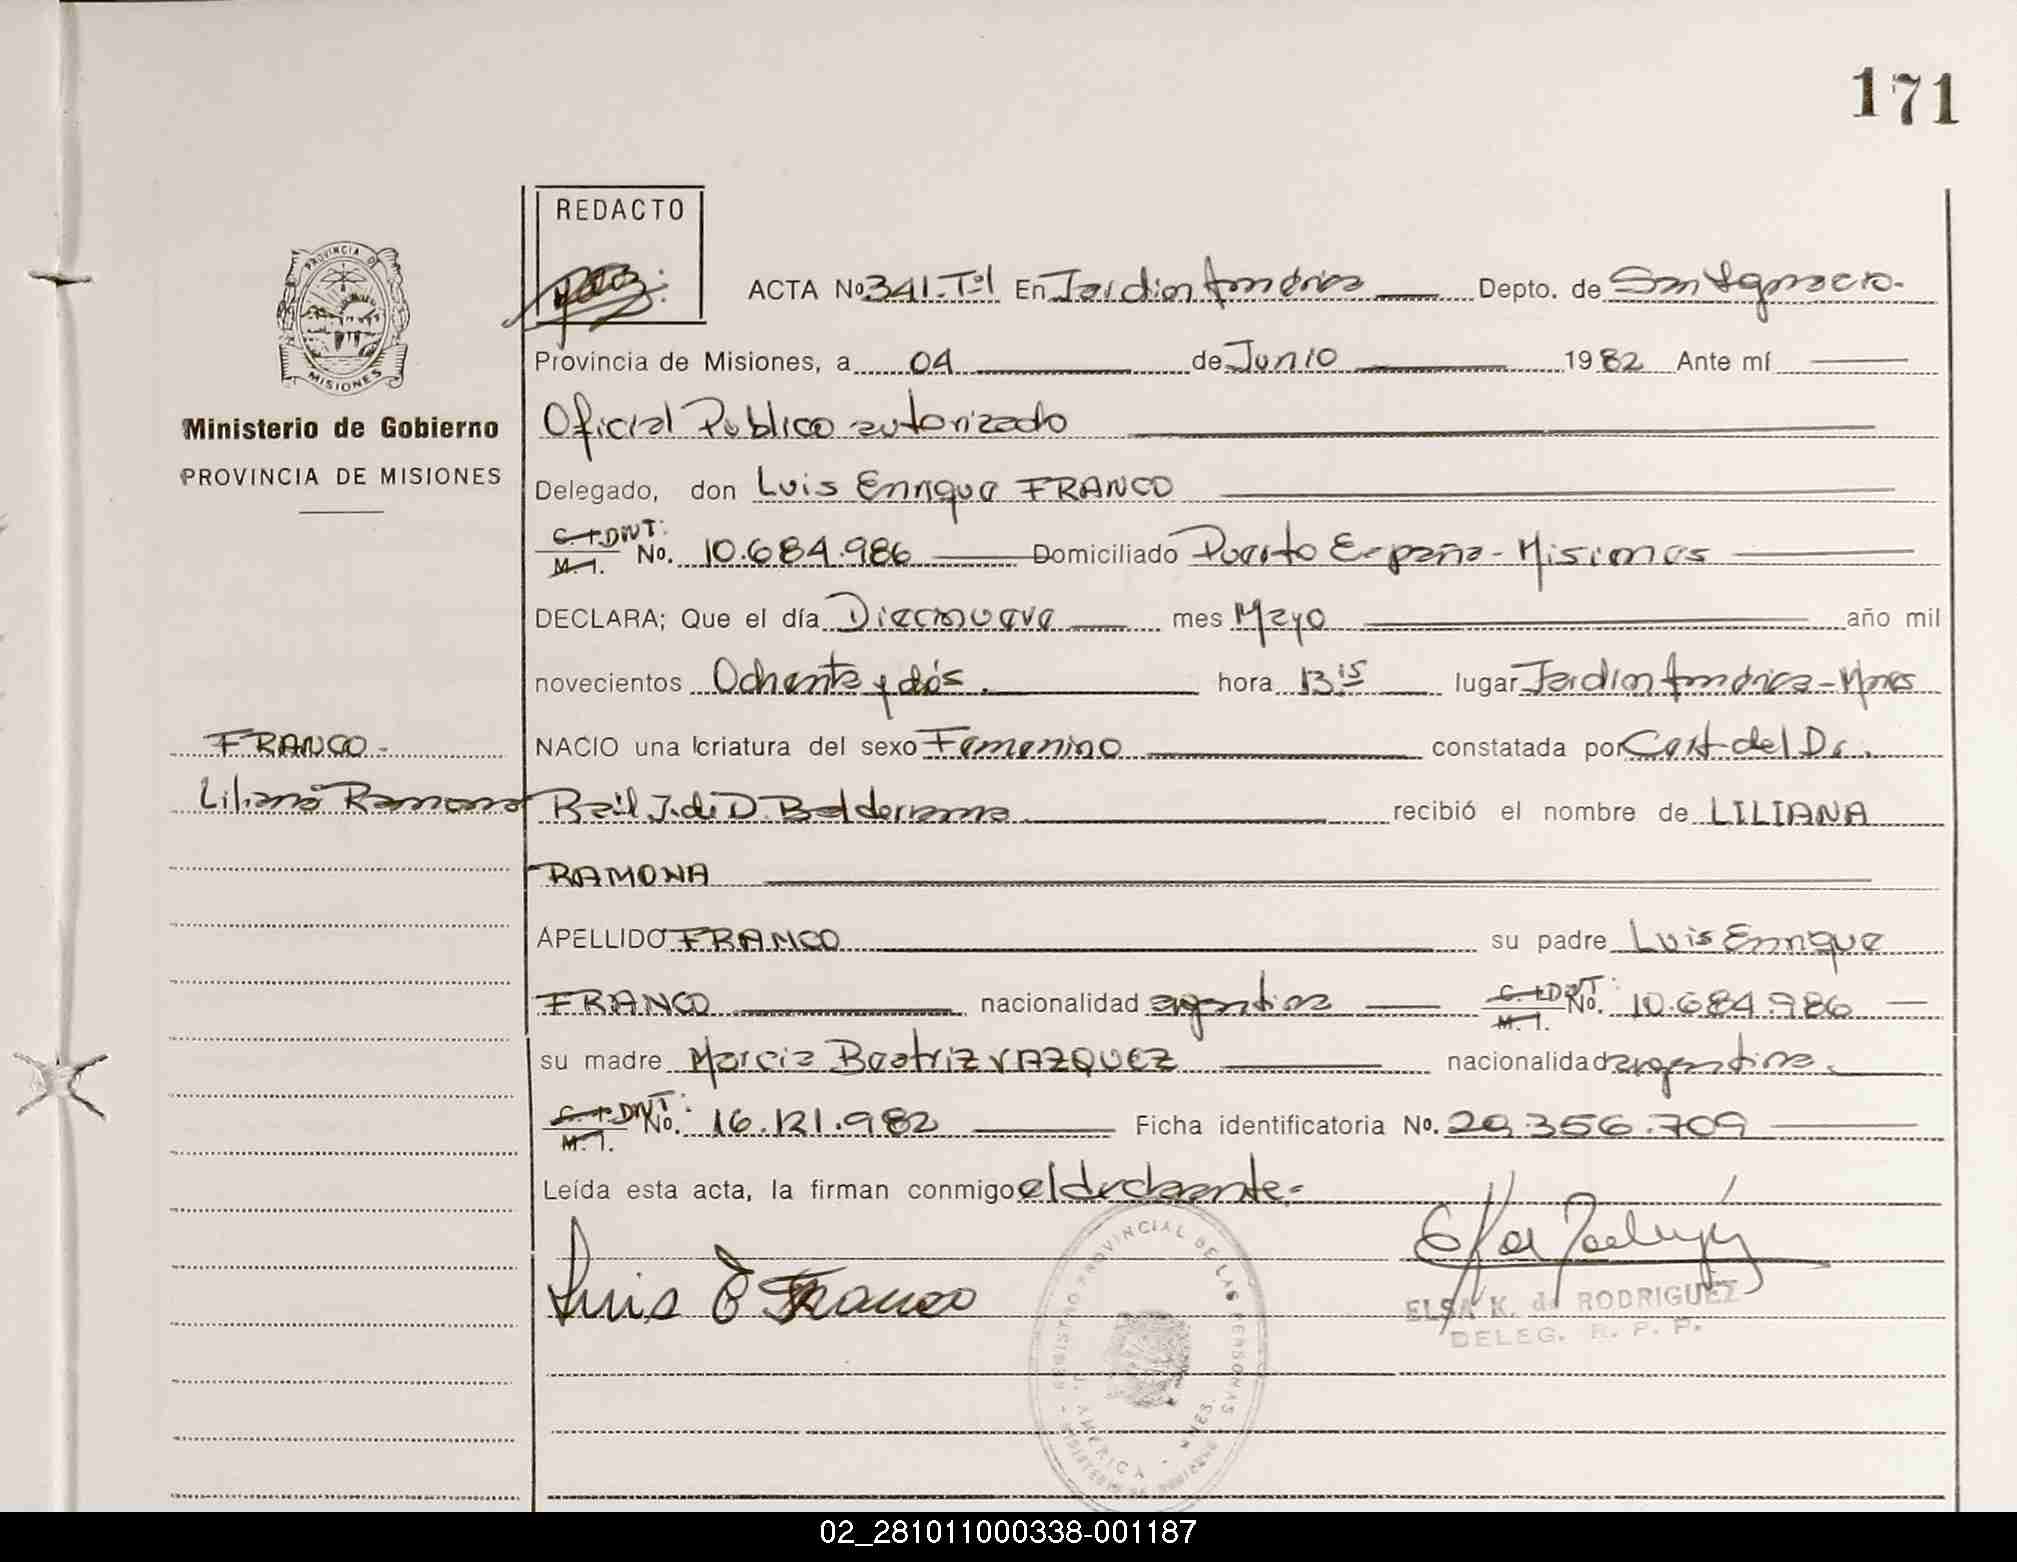 171
REDACTO
PROVINCIA D
MISIONES
Ministerio de Gobierno
PROVINCIA DE MISIONES
ACTA Nº 341.Tº1 En Jardín América Depto. de San Ignacio.
Provincia de Misiones, a 04 de Junio 1982 Ante mí
Oficial Publico autorizado
Delegado, don Luis Enrique FRANCO
C. I. DNI: M. I. No. 10.684.986 Domiciliado Puerto España - Misiones
DECLARA; Que el día Diecinueve mes Mayo año mil
novecientos Ochenta y dós. hora 13 15 lugar Jardín América - Mnes
FRANCO - NACIO una criatura del sexo Femenino constatada por Cert. del Dr.
Liliana Ramona Raúl J. de D. Balderrama recibió el nombre de LILIANA
RAMONA
APELLIDO FRANCO su padre Luis Enrique
FRANCO nacionalidad argentina C. I. DNI: M. I. No. 10.684.986
su madre Marcia Beatriz VAZQUEZ nacionalidad argentina.
C. I. DNI: M. I. No. 16.121.982 Ficha identificatoria No. 29.356.709
Leída esta acta, la firman conmigo el declarante.-
Luis E Franco
ELSA K. de RODRIGUEZ
DELEG. R. P. P.
REGISTRO PROVINCIAL DE LAS PERSONAS
AMERICA - MNES.
02_281011000338-001187